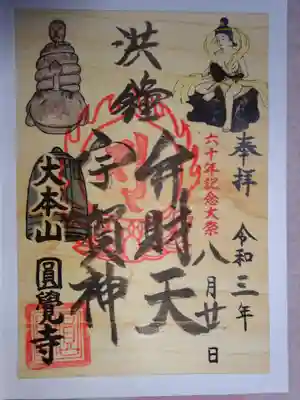 奉拝
令和三年
八月廿日
六十年記念大祭
洪鐘
弁財天
宇賀神
大本山
圓覺寺